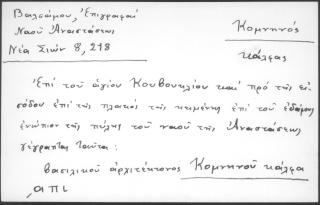 Βαλσάμου, Ἐπιγραφαὶ
Ναοῦ Ἀναστάσεως
Νέα Σιὼν 8, 218
Κομνηνός
κάλφας
Ἐπὶ τοῦ ἁγίου Κουβουκλίου καὶ πρὸ τῆς εἰσ-
όδου ἐπὶ τῆς πλακὸς τῆς κειμένης ἐπὶ τοῦ ἐδάφους
ἐνώπιον τῆς πύλης τοῦ ναοῦ τῆς Ἀναστάσεως
γέγραπται ταῦτα:
βασιλικοῦ ἀρχιτέκτονος Κομνηνοῦ κάλφα
͵αωι